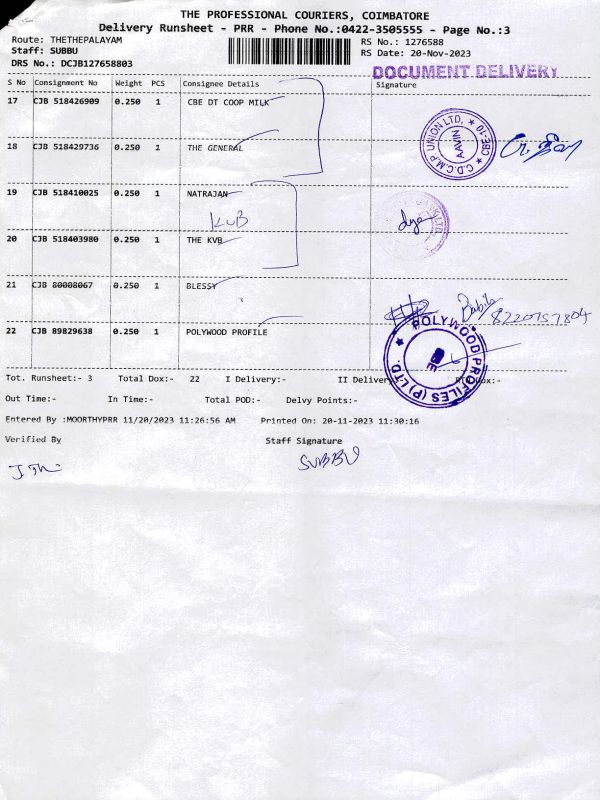 THE PROFESSIONAL COURIERS, COIMBATORE
Delivery Runsheet - PRR - Phone No.:0422-3505555 - Page No.:3
Route: THETHEPALAYAM
RS No.: 1276588
Staff: SUBBU
RS Date: 20-Nov-2023
DRS No.: DCJB127658803
DOCUMENT DELIVERY
S No Consignment No Weight PCS Consignee Details Signature
17 CJB 518426909 0.250 1 CBE DT COOP MILK
C.D.C.M.P UNION LTD, ★ CBE-10 ★
AAVIN
18 CJB 518429736 0.250 1 THE GENERAL
19 CJB 518410025 0.250 1 NATRAJAN
KVB
20 CJB 518403980 0.250 1 THE KVB
21 CJB 80008067 0.250 1 BLESSY
Babila
8220757804
22 CJB 89829638 0.250 1 POLYWOOD PROFILE
★ POLYWOOD PROFILES (P) LTD.
Tot. Runsheet:- 3 Total Dox:- 22 I Delivery:- II Delivery
Out Time:- In Time:- Total POD:- Delvy Points:-
Entered By :MOORTHYPRR 11/20/2023 11:26:56 AM Printed On: 20-11-2023 11:30:16
Verified By Staff Signature
SUBBU